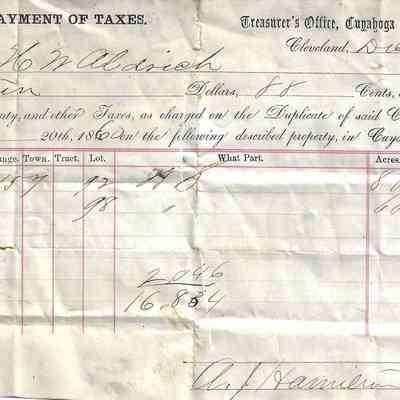 PAYMENT OF TAXES.
Treasurer's Office, Cuyahoga
Cleveland, Dec
H W Aldrich
Dollars, 88 Cents,
nty, and other Taxes, as charged on the Duplicate of said C
20th, 186 on the following described property, in Cuya
nge. Town. Tract. Lot. What Part. Acres.
15 7 92
98 "
2 046
16.834
A. J. Hamilton